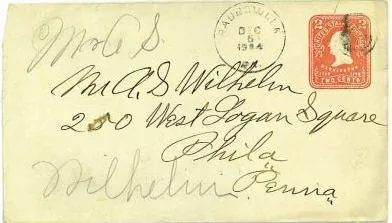 Mr A S.
DEC
5
2 UNITED STATES POSTAGE 2
WASHINGTON
TWO CENTS
Mr. A. S. Wilhelm
250 West Logan Square
Phila
Penna
Wilhelm